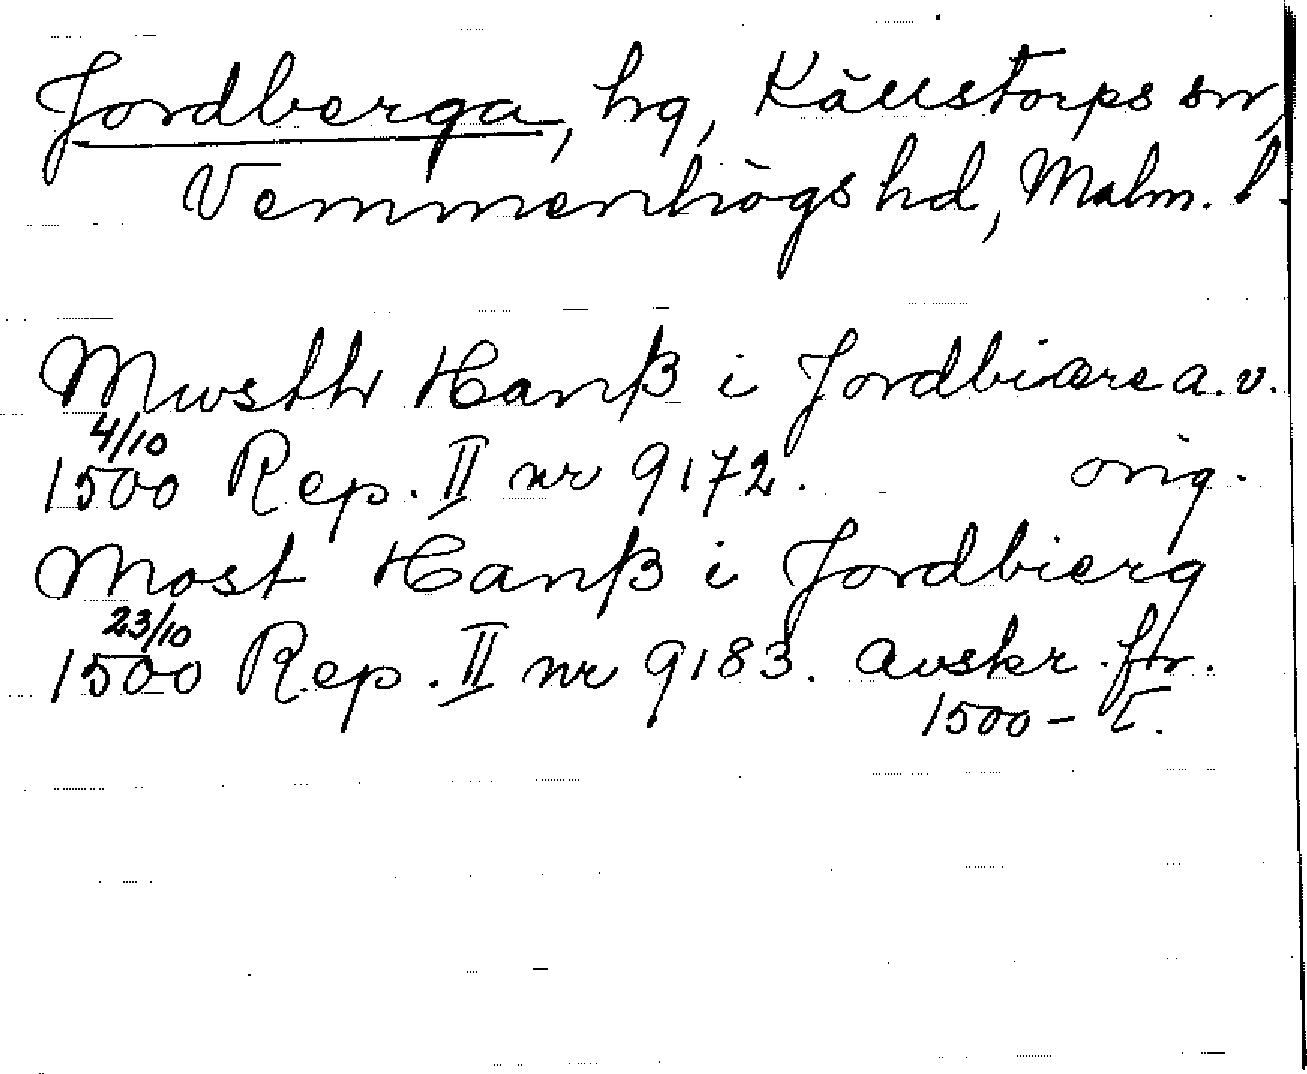 Jordberga, hg, Källstorps sn,
Vemmenhögs hd, Malm. l.
Mwsthr Hanß i Jordbiære a.v.
4/10
1500 Rep. II nr 9172. orig.
Most Hanß i Jordbierg
23/10
1500 Rep. II nr 9183. avskr. fr.
1500-t.